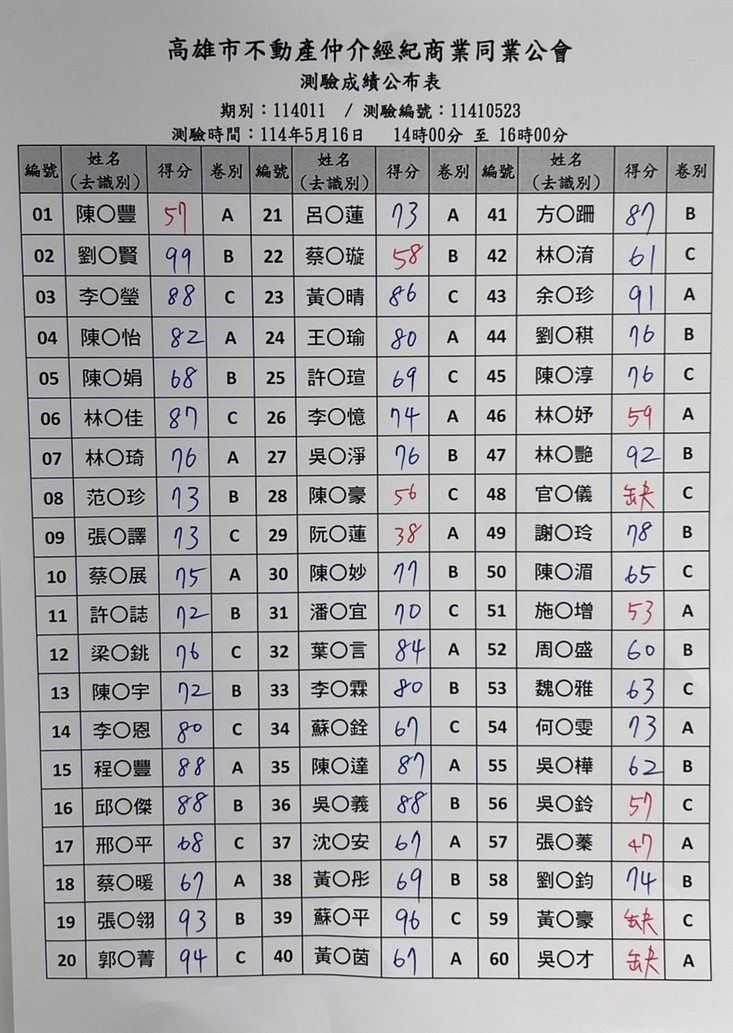 高雄市不動產仲介經紀商業同業公會
測驗成績公布表
期別：114011 / 測驗編號：11410523
測驗時間：114年5月16日 14時00分 至 16時00分
編號 姓名（去識別） 得分 卷別 編號 姓名（去識別） 得分 卷別 編號 姓名（去識別） 得分 卷別
01 陳〇豐 57 A 21 呂〇蓮 73 A 41 方〇跚 87 B
02 劉〇賢 99 B 22 蔡〇璇 58 B 42 林〇淯 61 C
03 李〇瑩 88 C 23 黃〇晴 86 C 43 余〇珍 91 A
04 陳〇怡 82 A 24 王〇瑜 80 A 44 劉〇稘 76 B
05 陳〇娟 68 B 25 許〇瑄 69 C 45 陳〇淳 76 C
06 林〇佳 87 C 26 李〇憶 74 A 46 林〇妤 59 A
07 林〇琦 76 A 27 吳〇淨 76 B 47 林〇艷 92 B
08 范〇珍 73 B 28 陳〇豪 56 C 48 官〇儀 缺 C
09 張〇譯 73 C 29 阮〇蓮 38 A 49 謝〇玲 78 B
10 蔡〇展 75 A 30 陳〇妙 77 B 50 陳〇湄 65 C
11 許〇誌 72 B 31 潘〇宜 70 C 51 施〇增 53 A
12 梁〇銚 76 C 32 葉〇言 84 A 52 周〇盛 60 B
13 陳〇宇 72 B 33 李〇霖 80 B 53 魏〇雅 63 C
14 李〇恩 80 C 34 蘇〇銓 67 C 54 何〇雯 73 A
15 程〇豐 88 A 35 陳〇達 87 A 55 吳〇樺 62 B
16 邱〇傑 88 B 36 吳〇義 88 B 56 吳〇鈴 57 C
17 邢〇平 68 C 37 沈〇安 67 A 57 張〇蓁 47 A
18 蔡〇暖 67 A 38 黃〇彤 69 B 58 劉〇鈞 74 B
19 張〇翎 93 B 39 蘇〇平 96 C 59 黃〇豪 缺 C
20 郭〇菁 94 C 40 黃〇茵 67 A 60 吳〇才 缺 A